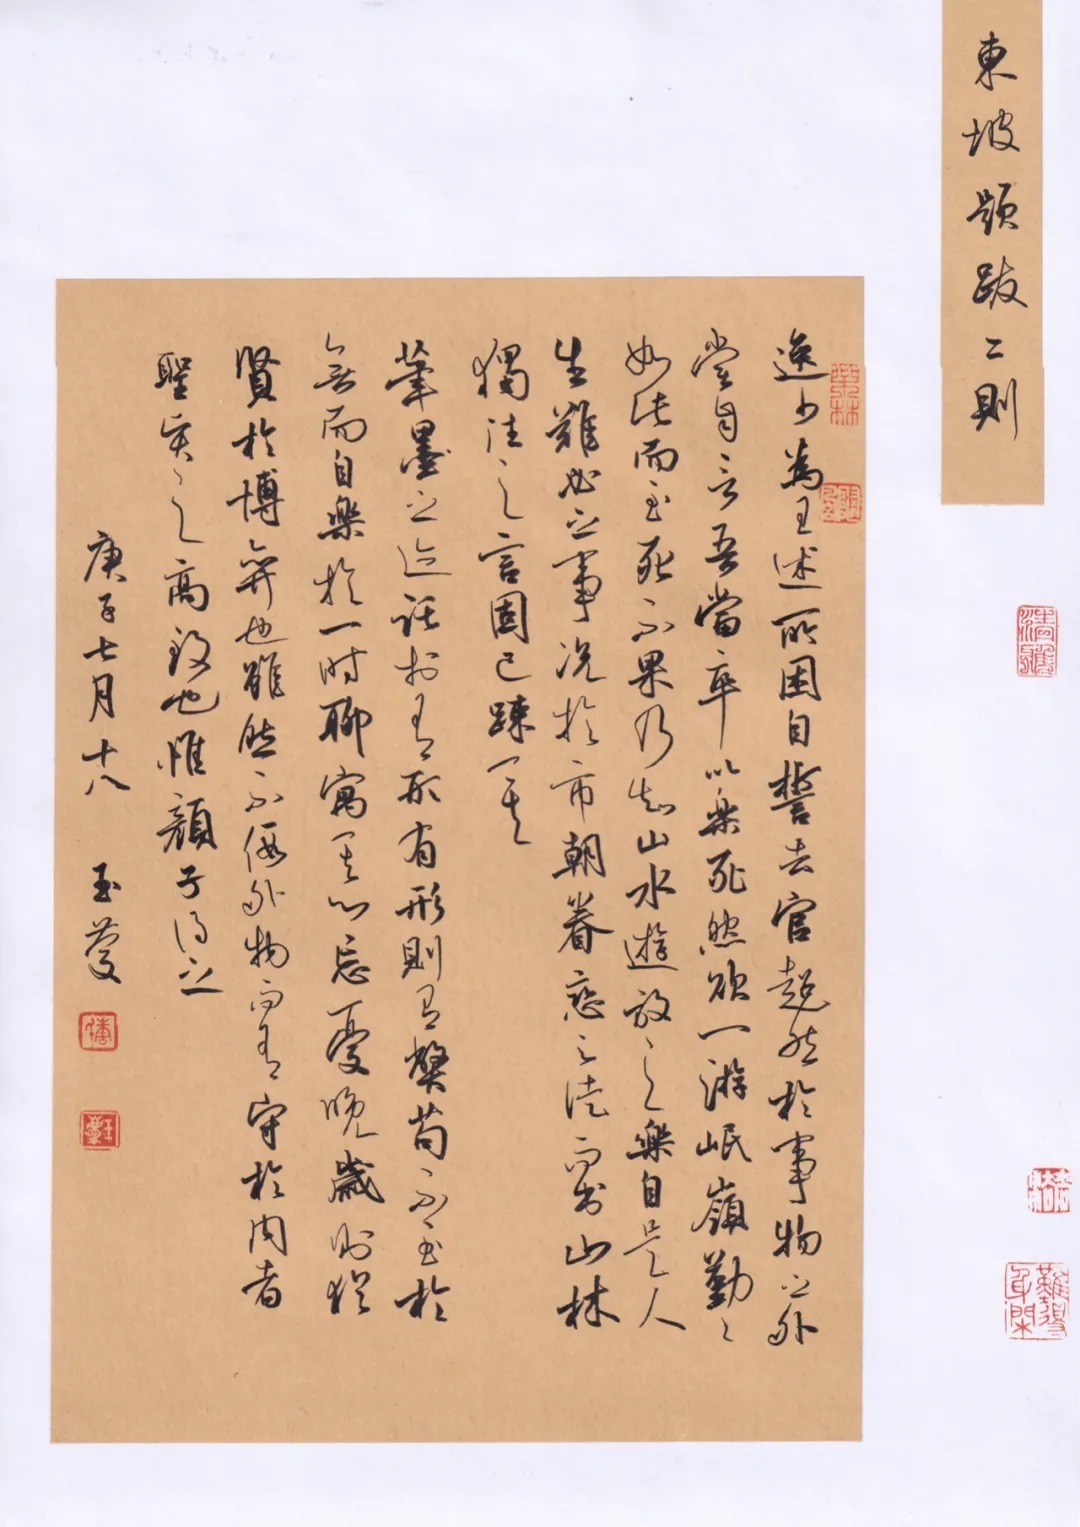 東坡題跋二則
逸少為王述所困自誓去官超然於事物之外
嘗自言吾當卒以樂死然欲一游岷嶺勤〻
如此而至死不果乃知山水遊放之樂自是人
生難必之事況於市朝眷戀之徒而出山林
獨往之言固已疎矣
筆墨之迹託於有形有形則有弊苟不至於
無而自樂於一時聊寓其心忘憂晚歲則猶
賢於博弈也雖然不假外物而有守於內者
聖賢之高致也惟顏子得之
庚子七月十八 玉慶
難得
身閑